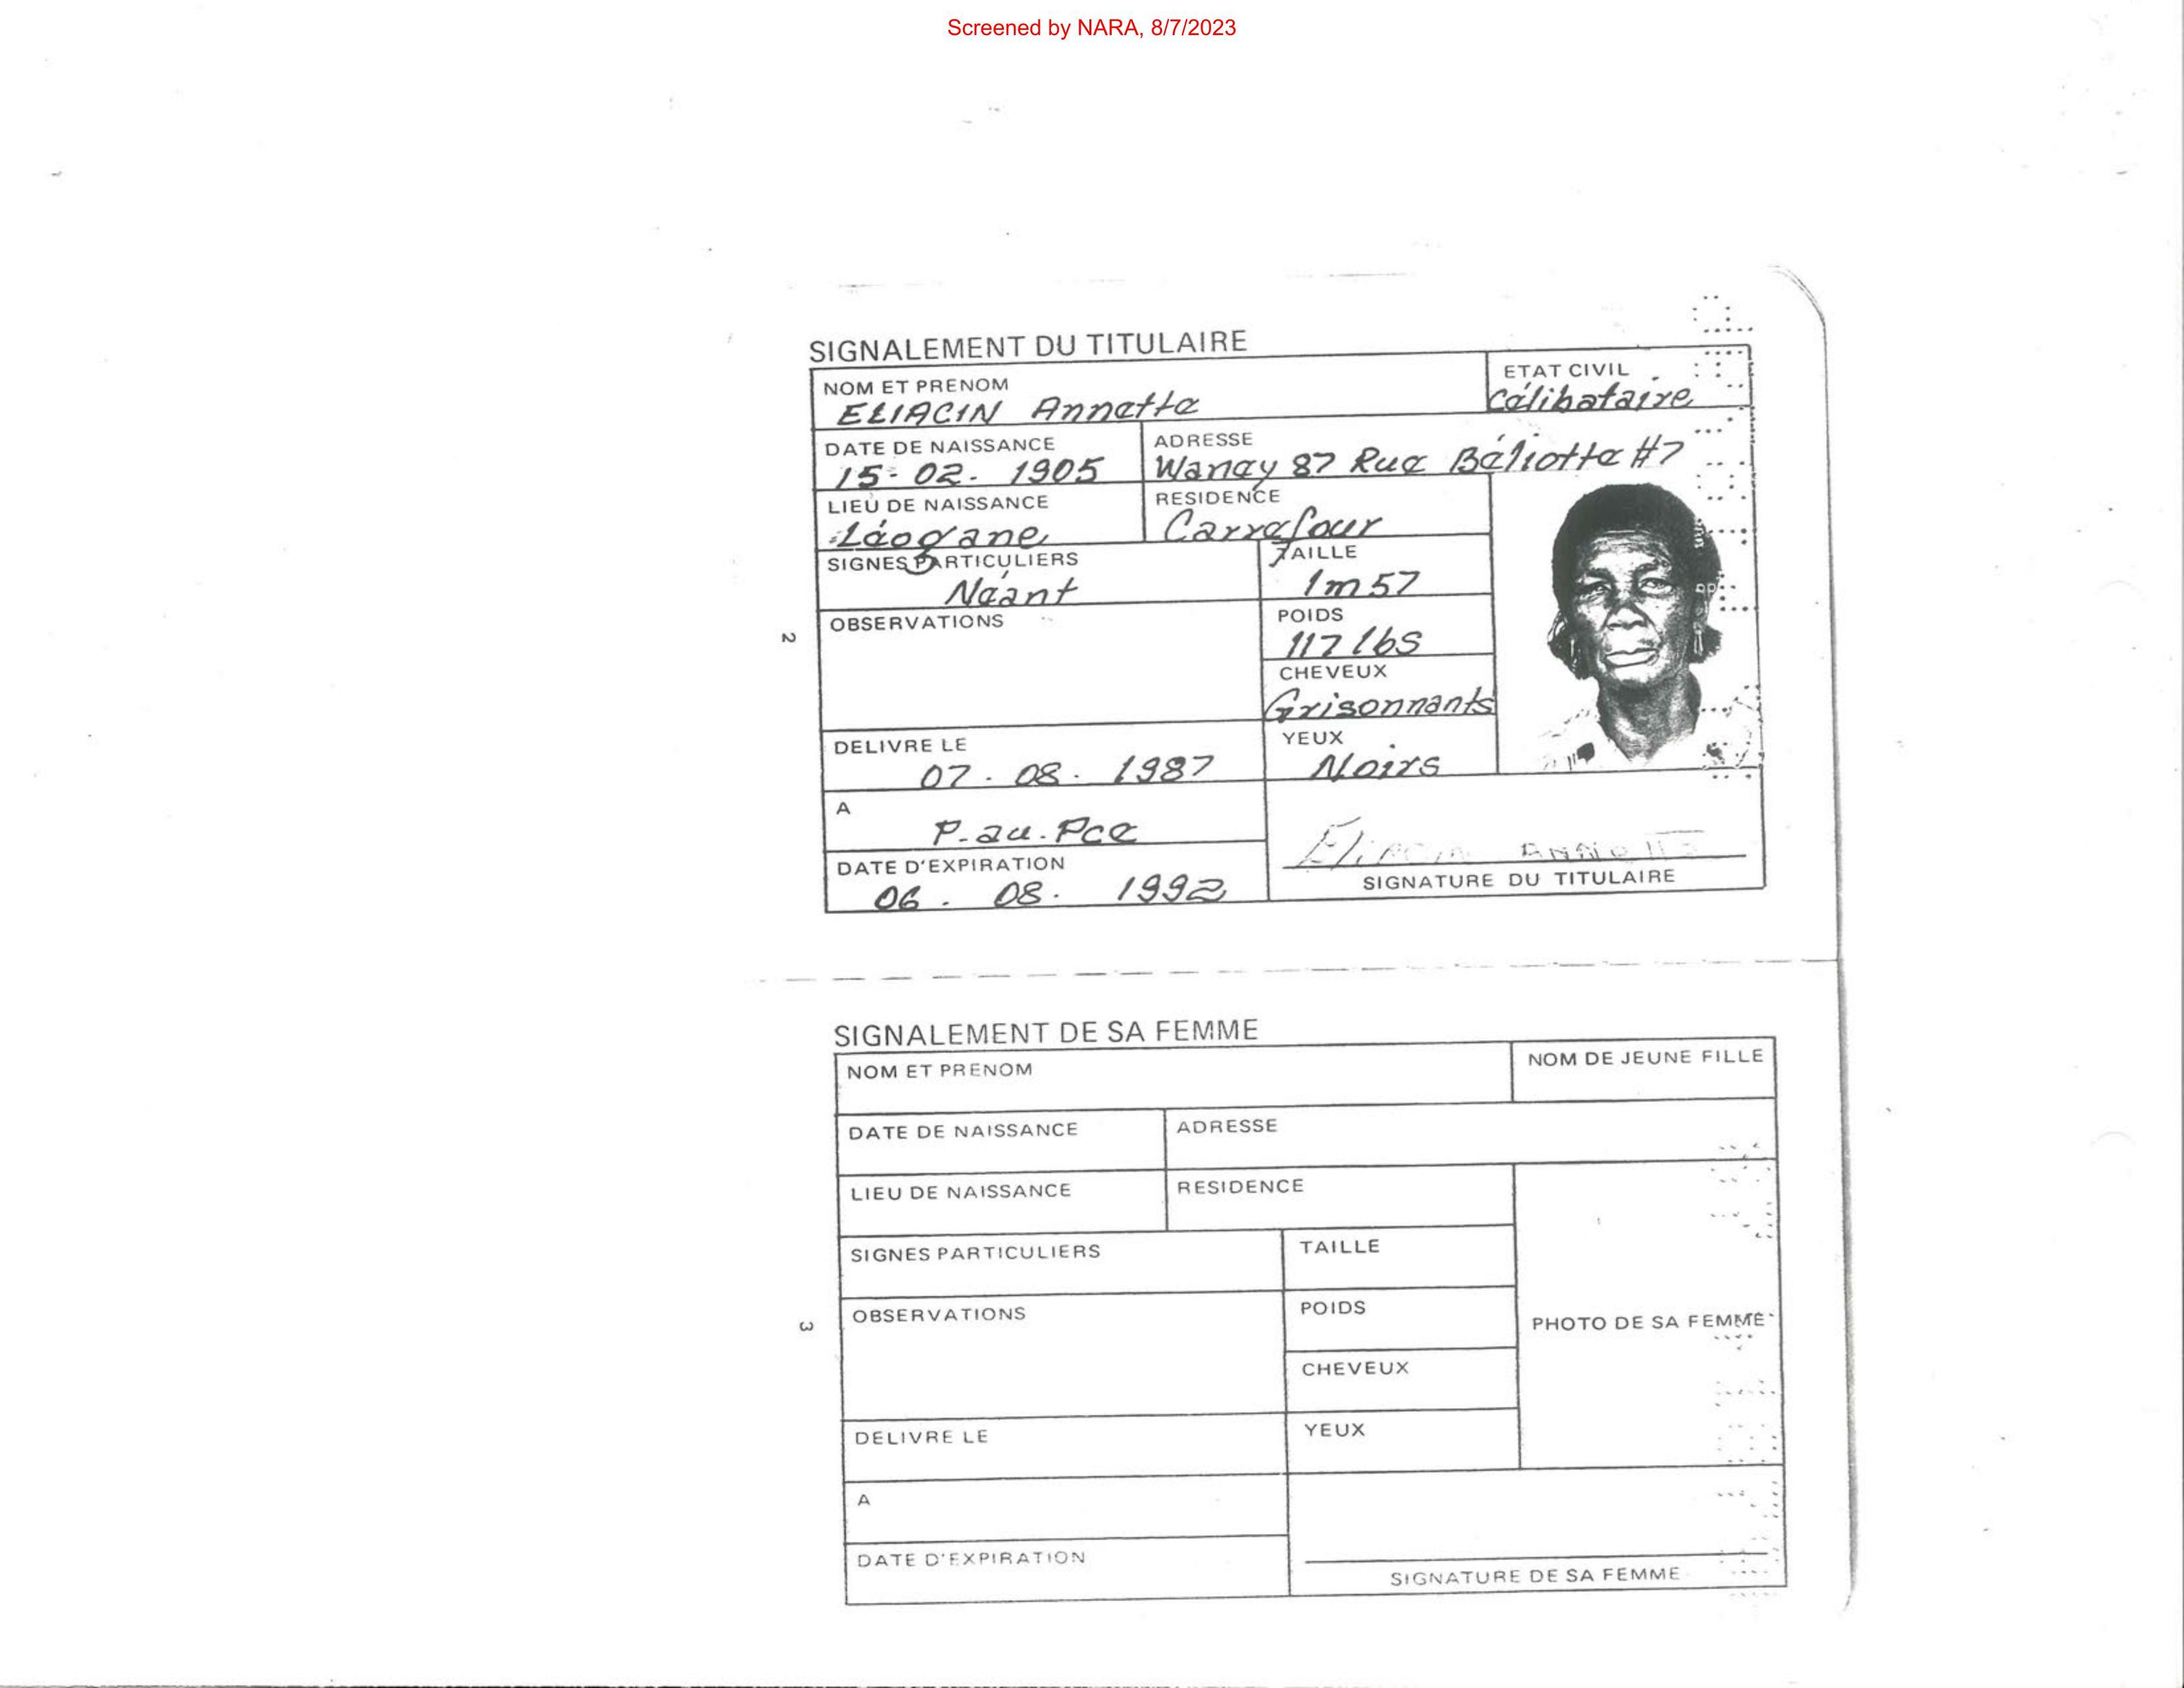 Screened by NARA, 8/7/2023
SIGNALEMENT DU TITULAIRE
NOM ET PRENOM
ELIACIN Annette
ETAT CIVIL
Célibataire
DATE DE NAISSANCE
15-02.1905
ADRESSE
Waney 87 Rue Béliotte #7
LIEU DE NAISSANCE
Léogane
RESIDENCE
Carrefour
SIGNES PARTICULIERS
Néant
TAILLE
1m57
OBSERVATIONS
POIDS
117 lbs
CHEVEUX
Grisonnants
DELIVRE LE
07.08.1987
YEUX
Noirs
A
P.au.Pce
DATE D'EXPIRATION
06.08.1992
Eliacin
SIGNATURE DU TITULAIRE
2
SIGNALEMENT DE SA FEMME
NOM ET PRENOM
NOM DE JEUNE FILLE
DATE DE NAISSANCE
ADRESSE
LIEU DE NAISSANCE
RESIDENCE
SIGNES PARTICULIERS
TAILLE
OBSERVATIONS
POIDS
PHOTO DE SA FEMME
CHEVEUX
DELIVRE LE
YEUX
A
DATE D'EXPIRATION
SIGNATURE DE SA FEMME
3